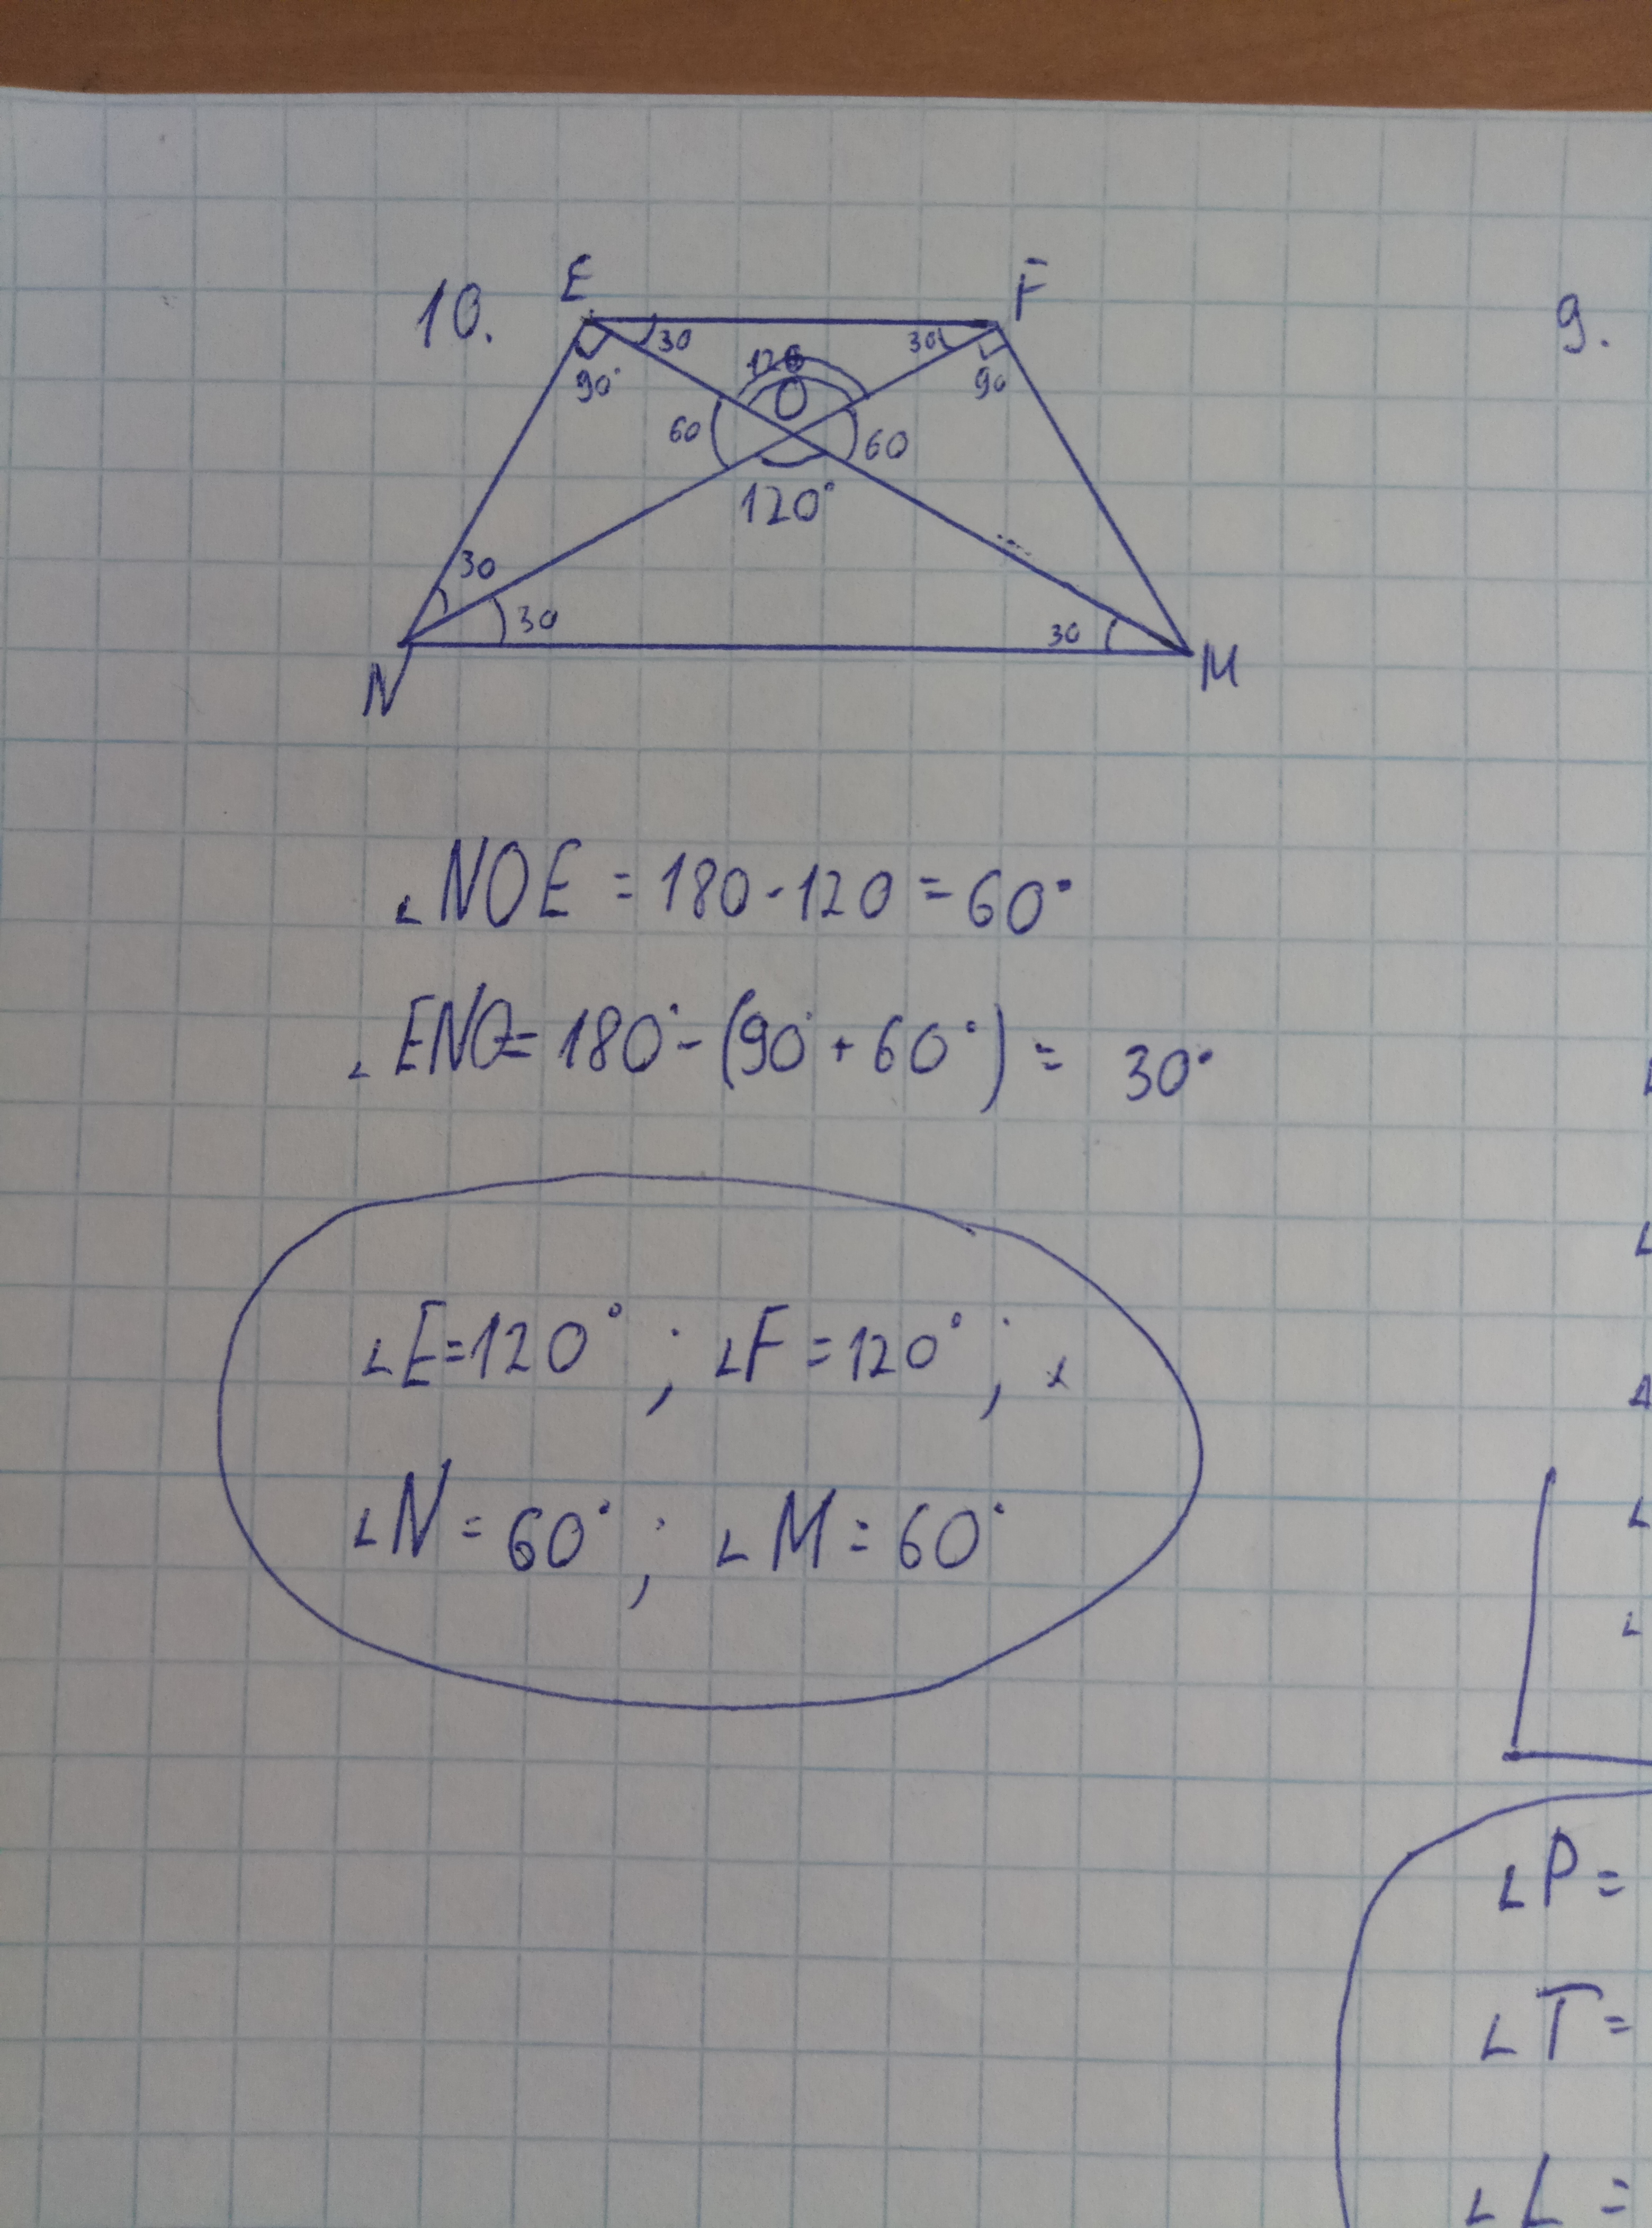 10.
E
F
9.
30
30
120
90°
90
O
60
60
120°
30
30
30
N
M
∠NOE = 180 - 120 = 60°
∠ENO = 180° - (90° + 60°) = 30°
∠E = 120° ; ∠F = 120° ;
∠N = 60° ; ∠M = 60°
∠P =
∠T =
∠L =